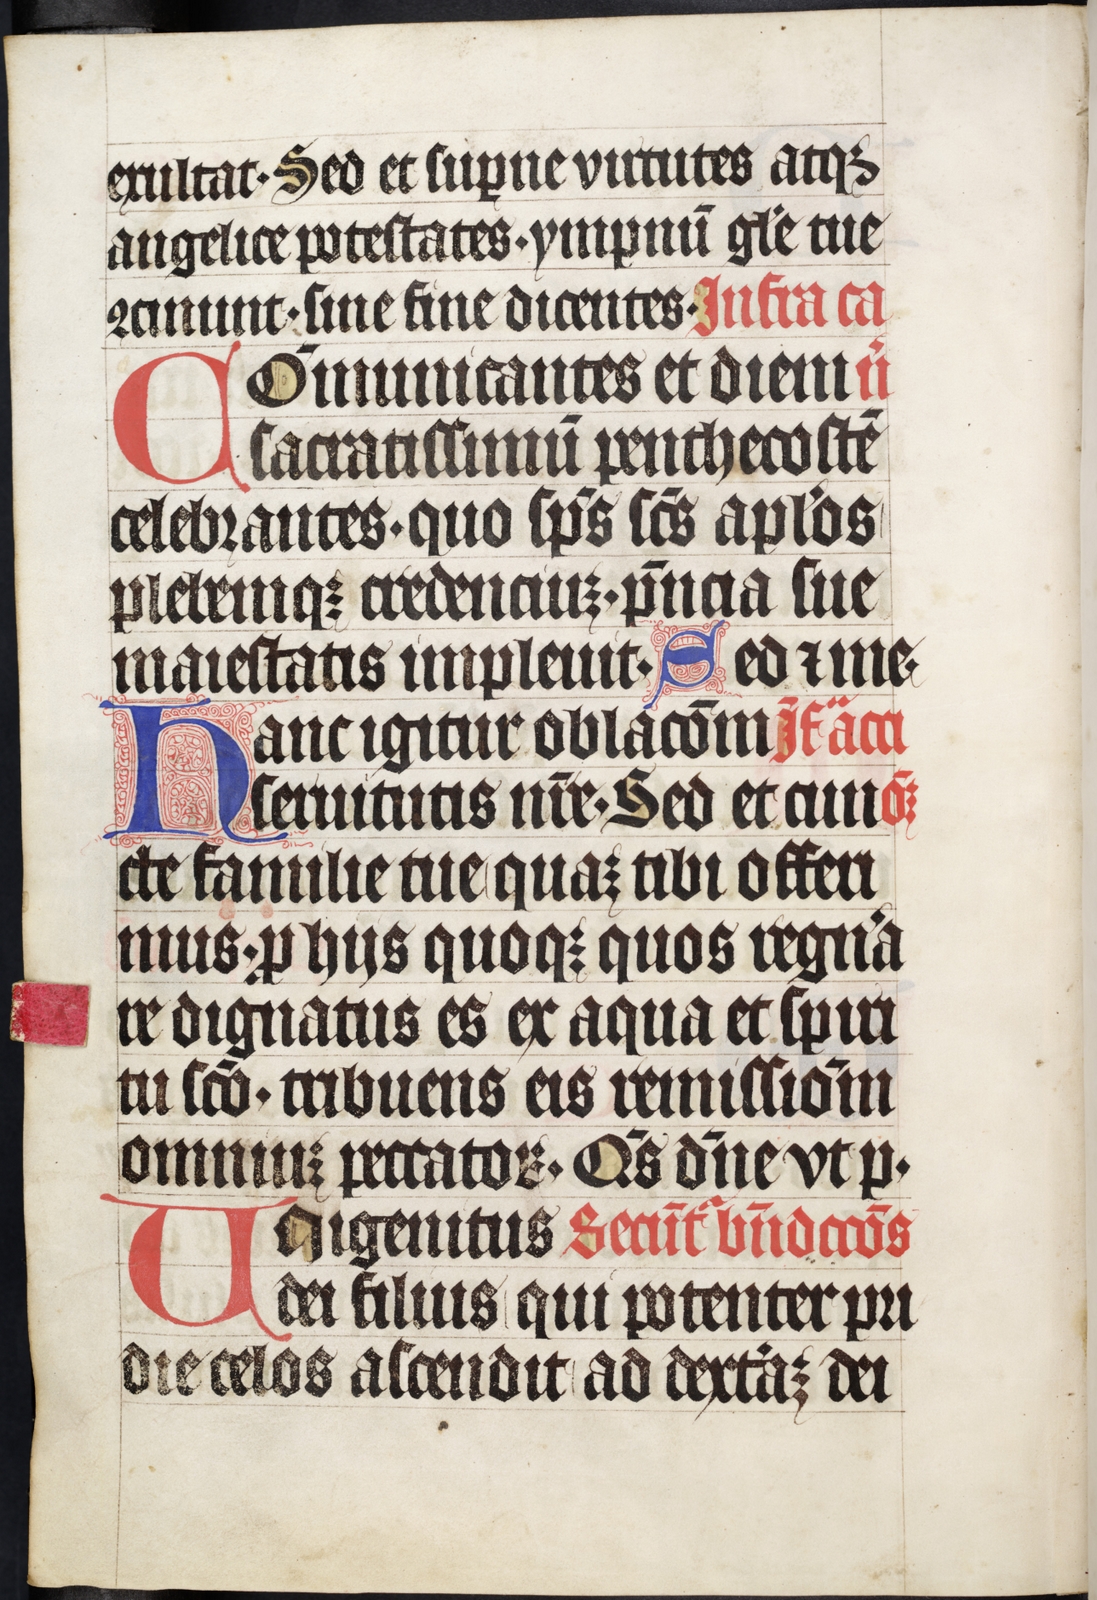 exultat· Sed et sup̲ne virtutes atqꝫ
angelice potestates· ympnū gl̓e tue
ꝯcinunt· sine fine dicentes· Infra ca
Cōmunicantes et diem n̄
sacratissimū penthecostē
celebrantes· quo sp̄s sc̄s apl̓os
plebemqꝫ credenciuꝫ· p̄ncia sue
maiestatis impleuit· Sed ⁊ me·
Hanc igitur oblac̄om Jf̄ acti
seruitutis nr̄e· Sed et cun oꝫ
cte familie tue quaꝫ tibi offeri
mus· ꝓ hijs quoqꝫ quos regn̓a
re dignatus es ex aqua et spiri
tu sc̄o· tribuens eis remissiōm
omniuꝫ peccatoꝝ· Q̄s dn̄e vt p·
Unigenitus Secūt᷑ bn̄dccōs
dei filius qui potenter pri
die celos ascendit ad dext̓aꝫ dei